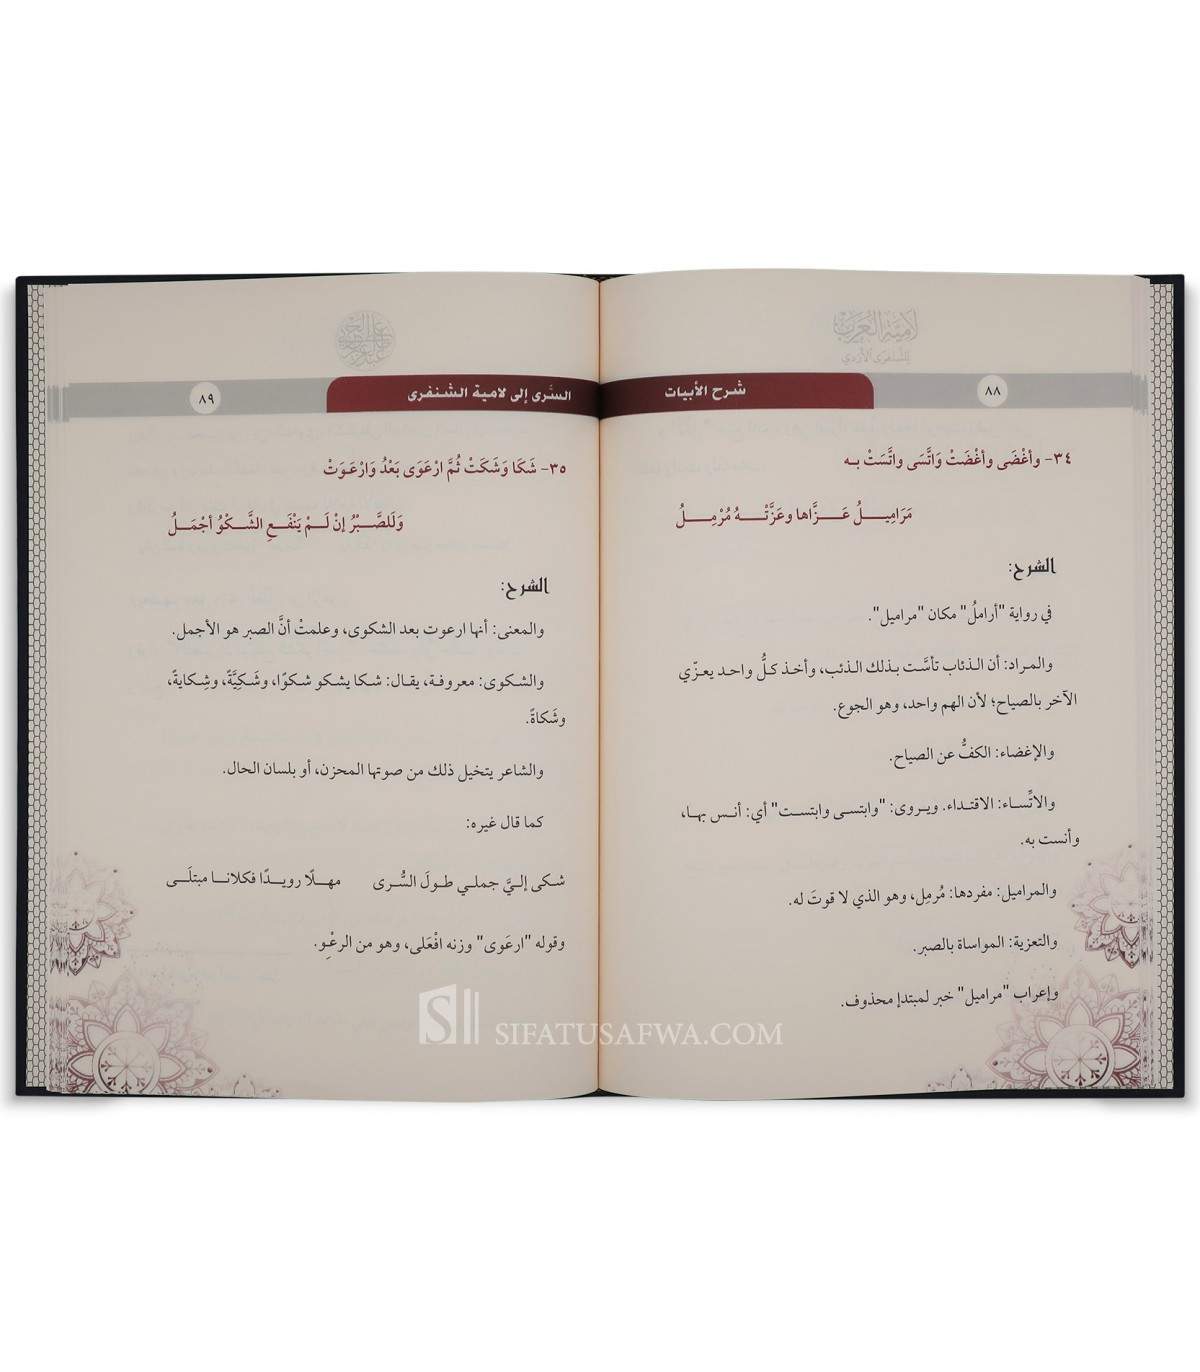 لامية العرب
للشنفرى الأزدي
٨٨
شرح الأبيات
٣٤- وأغْضَى وأغْضَتْ وَاتَّسَى واتَّسَتْ بـه
مَرَامِيـــلُ عَـــزَّاها وعَزَّتْـــهُ مُرْمِـــلُ
الشرح:
في رواية "أراملُ" مكان "مراميل".
والمـراد: أن الـذئاب تأسَّـت بـذلك الـذئب، وأخـذ كـلُّ واحـد يعـزّي
الآخر بالصياح؛ لأن الهم واحد، وهو الجوع.
والإغضاء: الكفُّ عن الصياح.
والاتِّسـاء: الاقتـداء. ويـروى: "وابتسـى وابتسـت" أي: أنـس بهـا،
وأنست به.
والمراميل: مفردها: مُرمِل، وهو الذي لا قوتَ له.
والتعزية: المواساة بالصبر.
وإعراب "مراميل" خبر لمبتدإ محذوف.
السَّرى إلى لامية الشنفرى
٨٩
٣٥- شَكَا وَشَكَتْ ثُمَّ ارْعَوَى بَعْدُ وَارْعَـوَتْ
وَلَلصَّـــبْرُ إنْ لَـــمْ يَنْفَـــعِ الشَّـــكْوُ أجْمَـــلُ
الشرح:
والمعنى: أنها ارعوت بعد الشكوى، وعلمتْ أنَّ الصبر هو الأجمل.
والشكوى: معروفـة، يقـال: شـكا يشـكو شـكوًا، وشَـكِيَّةً، وشِـكايةً،
وشَكاةً.
والشاعر يتخيل ذلك من صوتها المحزن، أو بلسان الحال.
كما قال غيره:
شـكى إلـيَّ جملـي طـولَ السُّـرى مهـلًا رويـدًا فكلانـا مبتلَـى
وقوله "ارعَوى" وزنه افْعَلى، وهو من الرعْوِ.
SIFATUSAFWA.COM